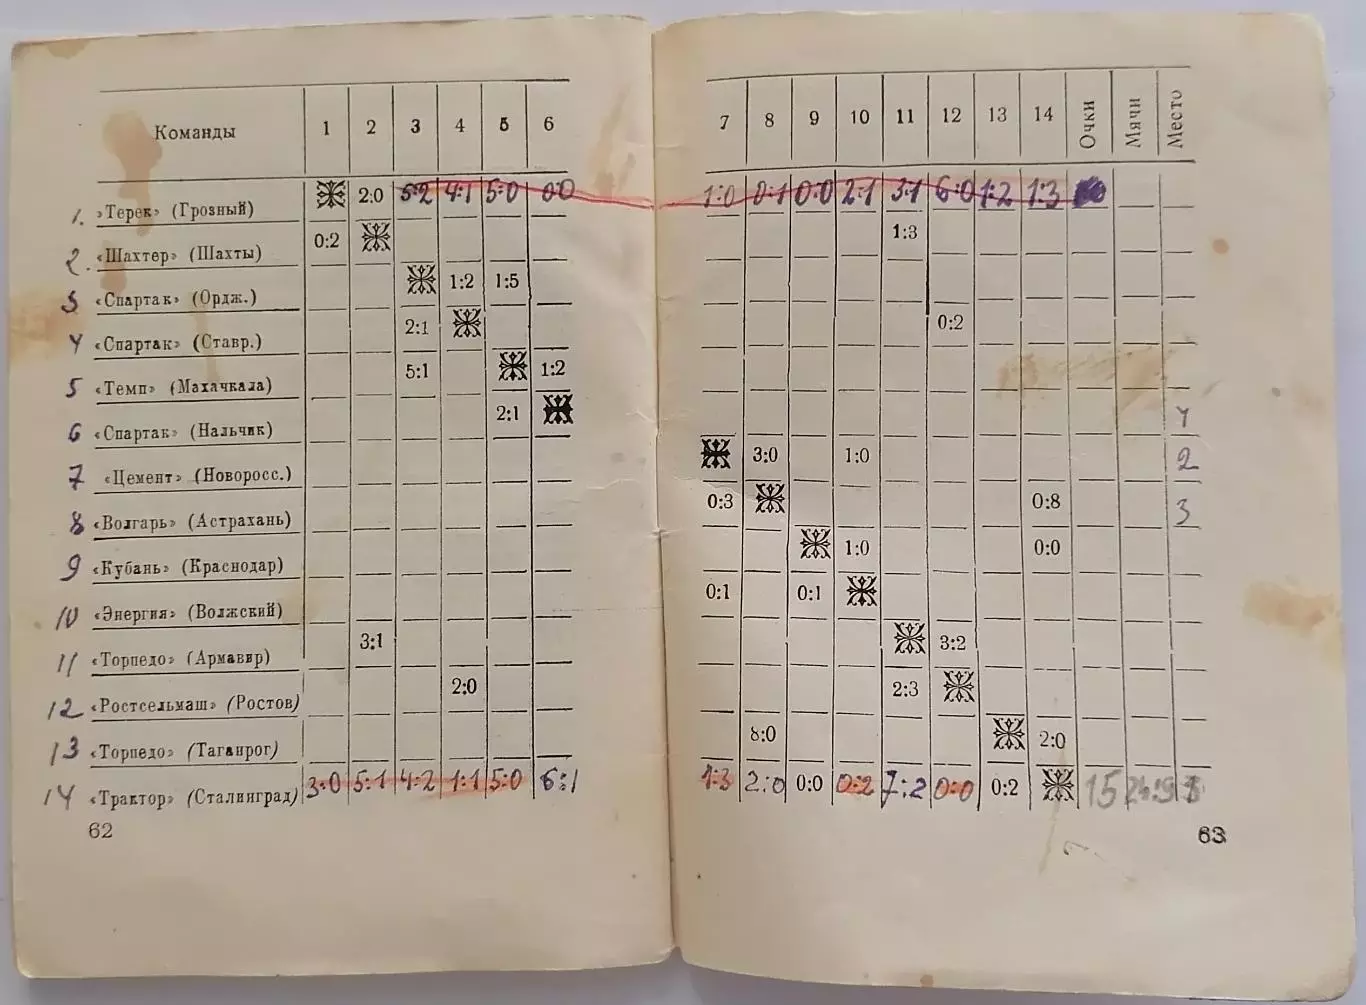 Команды 1 2 3 4 5 6 7 8 9 10 11 12 13 14 Очки Мячи Место
1. »Терек« (Грозный) 2:0 5:2 4:1 5:0 0:0 1:0 0:1 0:0 2:1 3:1 6:0 1:2 1:3
2. «Шахтер» (Шахты) 0:2 1:3
3 «Спартак» (Ордж.) 1:2 1:5
4 «Спартак» (Ставр.) 2:1 0:2
5 «Темп» (Махачкала) 5:1 1:2
6 «Спартак» (Нальчик) 2:1 4
7 «Цемент» (Новоросс.) 3:0 1:0 2
8 «Волгарь» (Астрахань) 0:3 0:8 3
9 «Кубань» (Краснодар) 1:0 0:0
10 «Энергия» (Волжский) 0:1 0:1
11 «Торпедо» (Армавир) 3:1 3:2
12 «Ростсельмаш» (Ростов) 2:0 2:3
13 «Торпедо» (Таганрог) 8:0 2:0
14 «Трактор» (Сталинград) 3:0 5:1 4:2 1:1 5:0 6:1 1:3 2:0 0:0 0:2 7:2 0:0 0:2 15
62
63